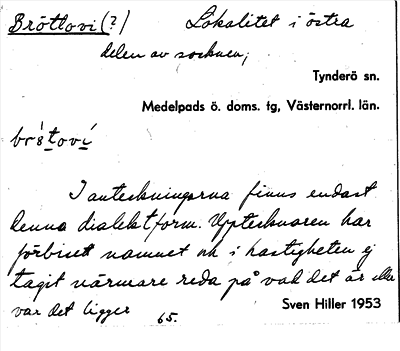 Bröttovi(?) Lokalitet i östra
delen av socknen;
Tynderö sn.
Medelpads ö. doms. tg, Västernorrl. län.
I anteckningarna finns endast
denna dialektform. Upptecknaren har
förbisett namnet och i hastigheten ej
tagit närmare reda på vad det är eller
var det ligger
65.
Sven Hiller 1953